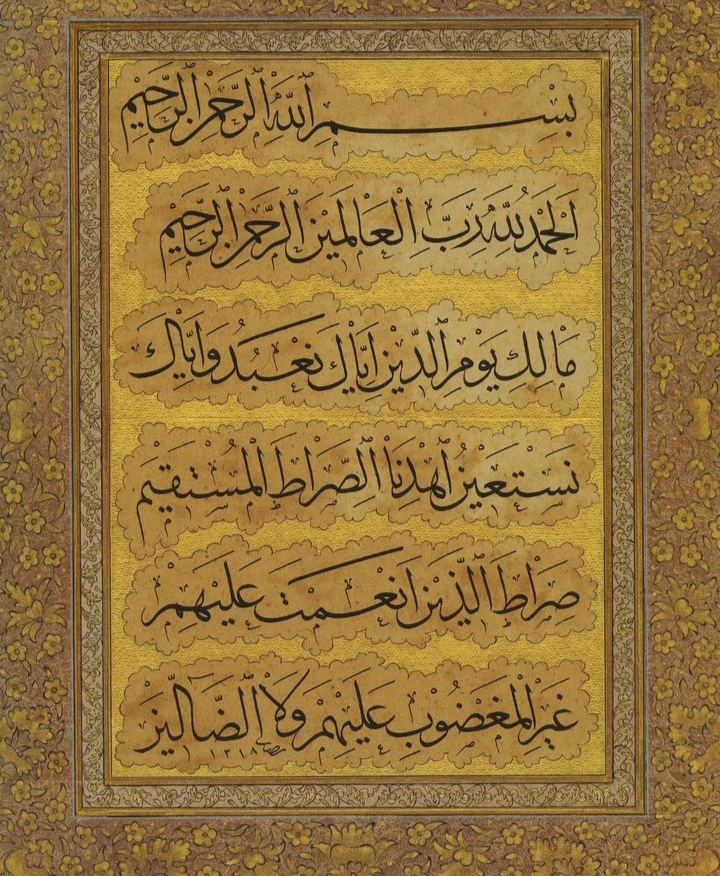 بِسْمِ اللَّهِ الرَّحْمٰنِ الرَّحِيْمِ
اَلْحَمْدُ لِلَّهِ رَبِّ الْعَالَمِيْنَ الرَّحْمٰنِ الرَّحِيْمِ
مَالِكِ يَوْمِ الدِّيْنِ اِيَّاكَ نَعْبُدُ وَاِيَّاكَ
نَسْتَعِيْنُ اِهْدِنَا الصِّرَاطَ الْمُسْتَقِيْمَ
صِرَاطَ الَّذِيْنَ اَنْعَمْتَ عَلَيْهِمْ
غَيْرِ الْمَغْضُوْبِ عَلَيْهِمْ وَلَا الضَّالِّيْنَ
١٣١٨